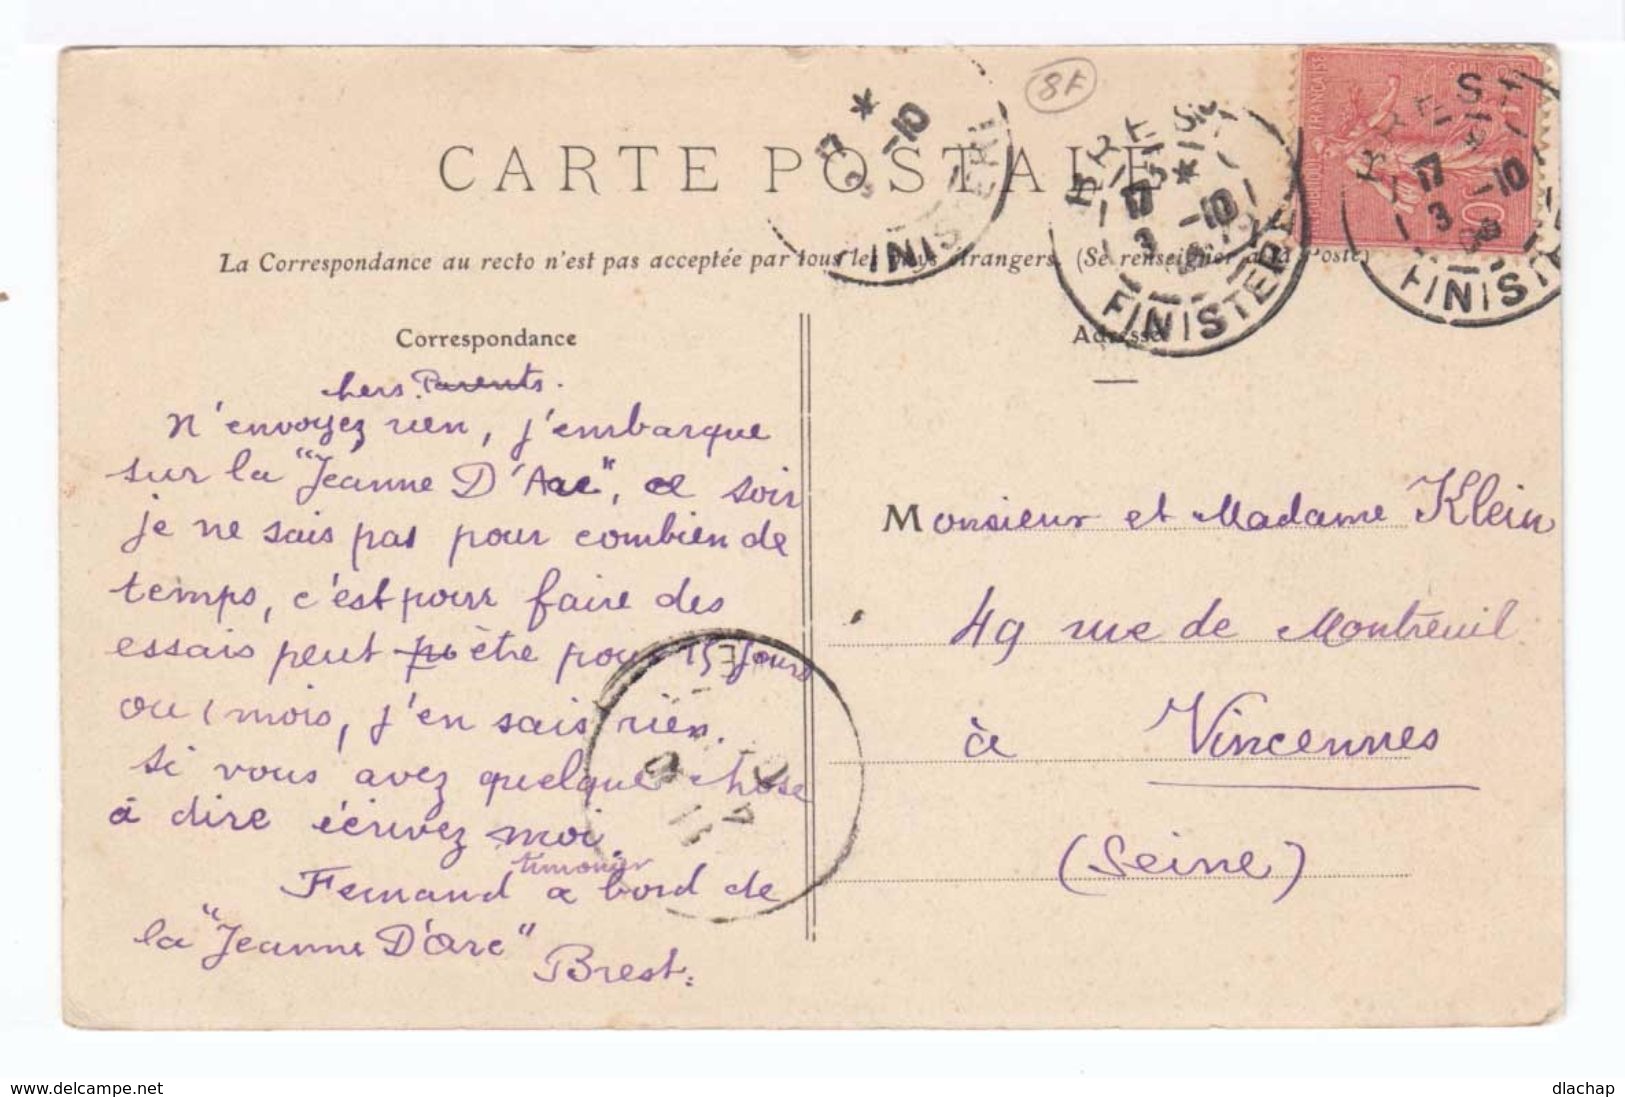 CARTE POSTALE
8F
La Correspondance au recto n'est pas acceptée par tous les pays étrangers. (Se renseigner à la Poste)
Correspondance
chers Parents.
N'envoyez rien, j'embarque
sur la "Jeanne D'Arc", ce soir
je ne sais pas pour combien de
temps, c'est pour faire des
essais peut être pour 15 jours
ou 1 mois, j'en sais rien.
si vous avez quelque chose
à dire écrivez moi.
timonier
Fernand a bord de
la "Jeanne D'Arc"
Brest.
Adresse
Monsieur et Madame Klein
49 rue de Montreuil
à Vincennes
(Seine)
17 *
3 -10
FINISTERE
BREST
17 *
3 -10
FINISTERE
BREST
17 *
3 -10
FINISTE
REPUBLIQUE FRANÇAISE
10
www.delcampe.net
dlachap